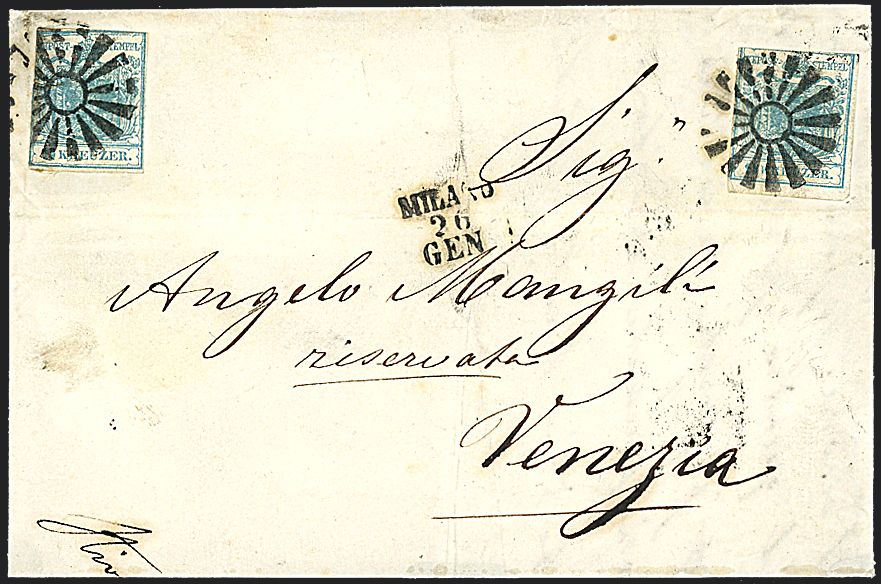 STEMPEL
KREUZER.
STEMPEL
ZER.
Sig.r
MILANO
26
GEN
Angelo Mangili
riservata
Venezia